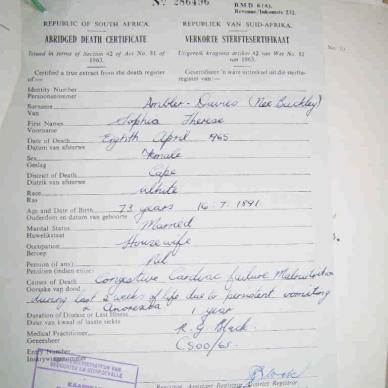 Nº 286496
B.M.D. 6(A).
Revenue/Inkomste 232.
REPUBLIC OF SOUTH AFRICA. REPUBLIEK VAN SUID-AFRIKA.
ABRIDGED DEATH CERTIFICATE VERKORTE STERFTESERTIFIKAAT
Issued in terms of Section 42 of Act No. 81 of 1963. Uitgereik kragtens artikel 42 van Wet No. 81 van 1963.
Certified a true extract from the death register of:— Gesertifiseer 'n ware uittreksel uit die sterfteregister van:—
Identity Number
Persoonsnommer
Surname Ambler-Davies (Née Buckley)
Van
First Names Sophia Therese
Voorname
Date of Death Eighth April 1965
Datum van afsterwe
Sex Female
Geslag
District of Death Cape
Distrik van afsterwe
Race White
Ras
Age and Date of Birth 73 years 16.7.1891
Ouderdom en datum van geboorte
Marital Status Married
Huwelikstaat
Occupation Housewife
Beroep
Pension (if any) Nil
Pensioen (indien enige)
Causes of Death Congestive Cardiac failure Malnutrition
Oorsake van dood during last 2 weeks of life due to persistent vomiting
& Anorexia
Duration of Disease or Last Illness 1 year
Duur van kwaal of laaste siekte
Medical Practitioner R. G. Black.
Geneesheer
Entry Number C500/65.
Inskrywingsnommer
Registrar, Assistant Registrar, District Registrar